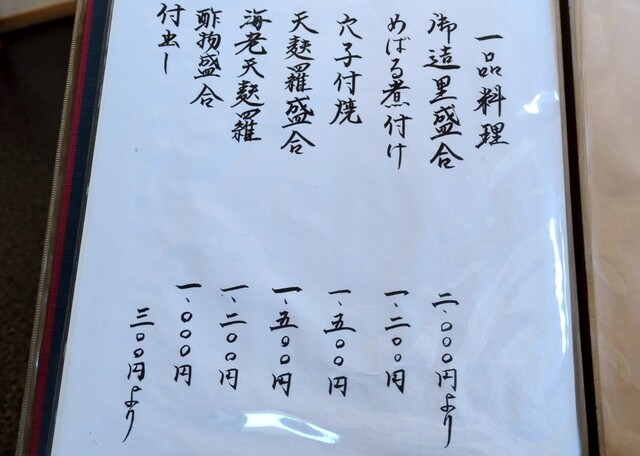 一品料理
御造里盛合 二、〇〇〇円より
めばる煮付け 一、二〇〇円
穴子付焼 一、五〇〇円
天麩羅盛合 一、五〇〇円
海老天麩羅 一、二〇〇円
酢物盛合 一、〇〇〇円
付出し 三〇〇円より